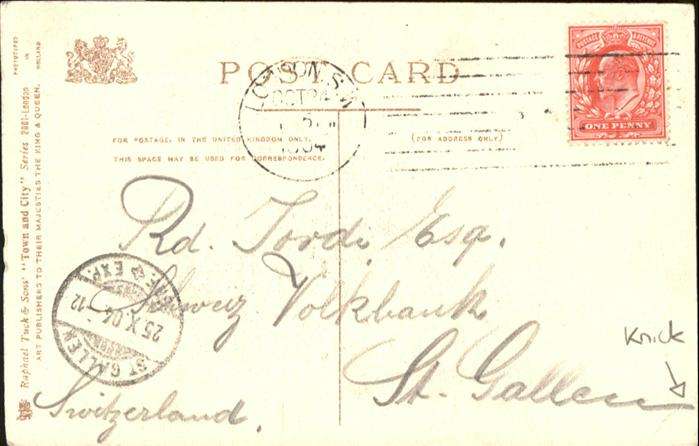 POST CARD
LONDON S.W
OCT 24
1904
ONE PENNY
FOR POSTAGE, IN THE UNITED KINGDOM ONLY,
THIS SPACE MAY BE USED FOR CORRESPONDENCE.
(FOR ADDRESS ONLY)
Rd. Tordi, Esq.
Schweiz Volksbank
St. Gallen
Switzerland.
Knick
ST GALLEN
25 X 04 - 12
EXP.
Raphael Tuck & Sons' "Town and City" Series 2061-London
ART PUBLISHERS TO THEIR MAJESTIES THE KING & QUEEN.
PHOTOTYPED
IN
HOLLAND